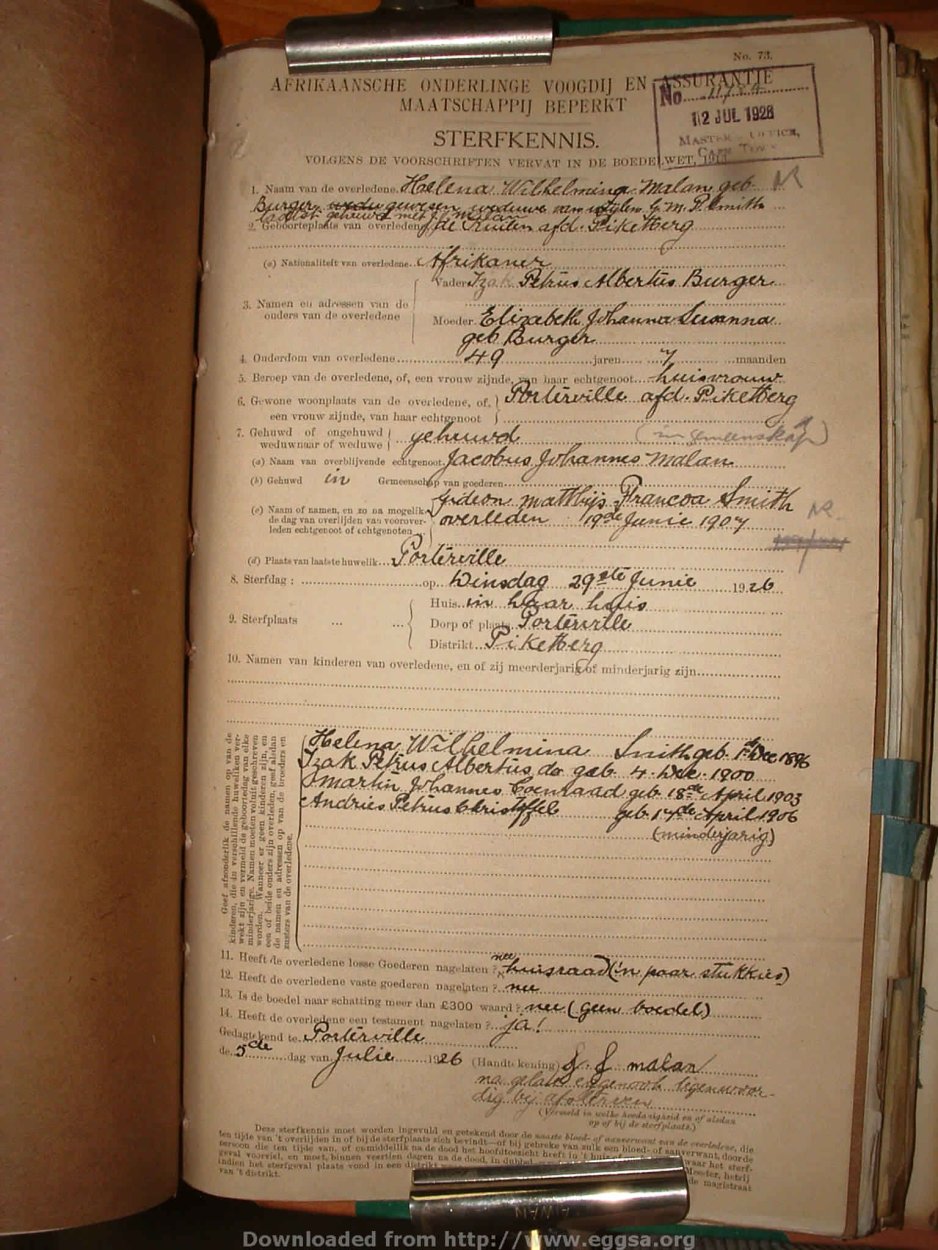 No. 73.
AFRIKAANSCHE ONDERLINGE VOOGDIJ EN ASSURANTIE
MAATSCHAPPIJ BEPERKT
No
12 JUL 1926
MASTER OFFICE,
CAPE TOWN
STERFKENNIS.
VOLGENS DE VOORSCHRIFTEN VERVAT IN DE BOEDELWET,
1. Naam van de overledene. Helena Wilhelmina Malan geb
Burger gewesen weduwe van wylen G. M. P. Smith
laatst gehuwd met J. J. Malan
2. Geboorteplaats van overledene de Kruiden afd. Piketberg
(a) Nationaliteit van overledene. Afrikaner
Vader Izak Petrus Albertus Burger
3. Namen en adressen van de
ouders van de overledene
Moeder Elizabeth Johanna Susanna
geb Burger
4. Ouderdom van overledene 49 jaren 7 maanden
5. Beroep van de overledene, of, een vrouw zijnde, van haar echtgenoot huisvrouw
6. Gewone woonplaats van de overledene, of, Porterville afd. Piketberg
een vrouw zijnde, van haar echtgenoot
7. Gehuwd of ongehuwd gehuwd (in gemeenskap)
weduwnaar of weduwe
(a) Naam van overblijvende echtgenoot Jacobus Johannes Malan
(b) Gehuwd in Gemeenschap van goederen
(c) Naam of namen, en zo na mogelik Gideon Matthys Francoa Smith
de dag van overlijden van vooroverleden echtgenoot of echtgenoten overleden 19de Junie 1907
(d) Plaats van laatste huwelik Porterville
8. Sterfdag : op Dinsdag 29ste Junie 1926
9. Sterfplaats
Huis in haar huis
Dorp of plaats Porterville
Distrikt Piketberg
10. Namen van kinderen van overledene, en of zij meerderjarig of minderjarig zijn
Geef afzonderlik de namen op van de
kinderen, die in verschillende huweliken verwekt
zijn en vermeld de geboortedag van elke
minderjarige. Namen moeten voluit geschreven
worden. Wanneer er geen kinderen zijn, en
een of beide ouders zijn overleden, geef alsdan
de namen en adressen op van de broeders en
zusters van de overledene.
Helena Wilhelmina Smith geb 1st Dec 1896
Izak Petrus Albertus do geb 4 Dec. 1900
Martin Johannes Coenraad geb 18de April 1903
Andries Petrus Christoffel geb 17de April 1906
(minderjarig)
11. Heeft de overledene losse Goederen nagelaten ? nee huisraad (n paar stukkies)
12. Heeft de overledene vaste goederen nagelaten ? nee
13. Is de boedel naar schatting meer dan £300 waard ? nee (geen boedel)
14. Heeft de overledene een testament nagelaten ? ja!
Gedagtekend te Porterville
de 5de dag van Julie 1926 (Handtekening) J J Malan
na gelate eggenoot teenwoordig
by afsterwen
(Vermeld in welke hoedanigheid en of alsdan
op of bij de sterfplaats.)
Deze sterfkennis moet worden ingevuld en getekend door de naaste bloed- of aanverwant van de overledene, die
ten tijde van 't overlijden in of bij de sterfplaats zich bevindt—of bij gebreke van zulk een bloed- of aanverwant, door de
persoon die ten tijde van, of onmiddellik na de dood het hoofdtoezicht heeft in 't huis waar het sterfgeval
voorviel, en moet, binnen veertien dagen na de dood, in dubbel Meester, hetzij
indien het sterfgeval plaats vond in een distrikt de magistraat
van 't distrikt.
Downloaded from http://www.eggsa.org